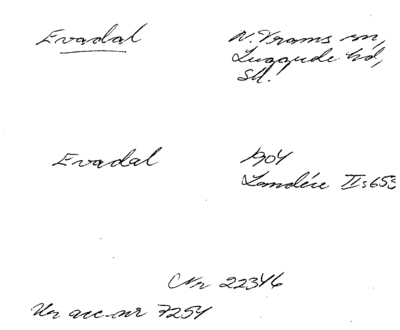 Evadal N. Vrams sn,
Luggude hd,
Sk.
Evadal 1904
Landére II:653
Nr 22346
Ur acc.nr 7254